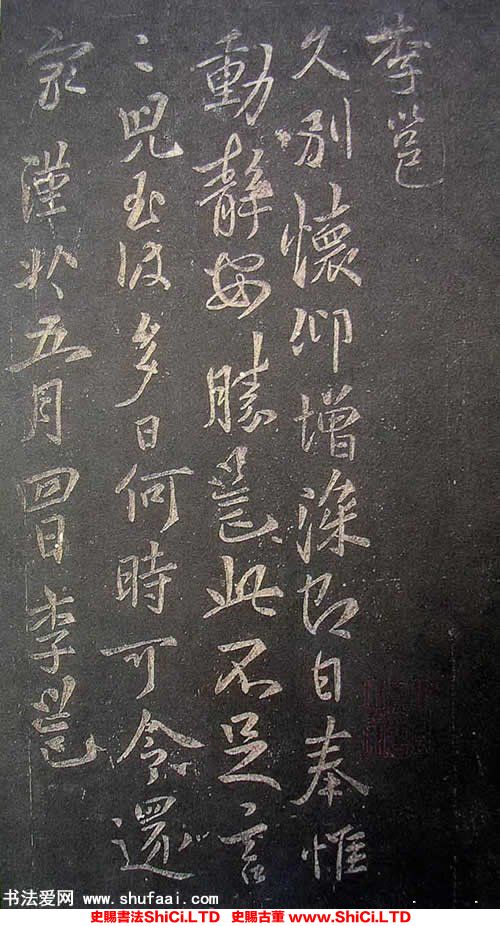 李邕
久別懷仰增深即日奉惟
動靜安勝邕此不足言
〻兒至彼多日何時可令還
家謹狀五月四日李邕
书法爱网
www.shufaai.com
史赐書法ShiCi.LTD 史赐古董 www.ShiCi.LTD